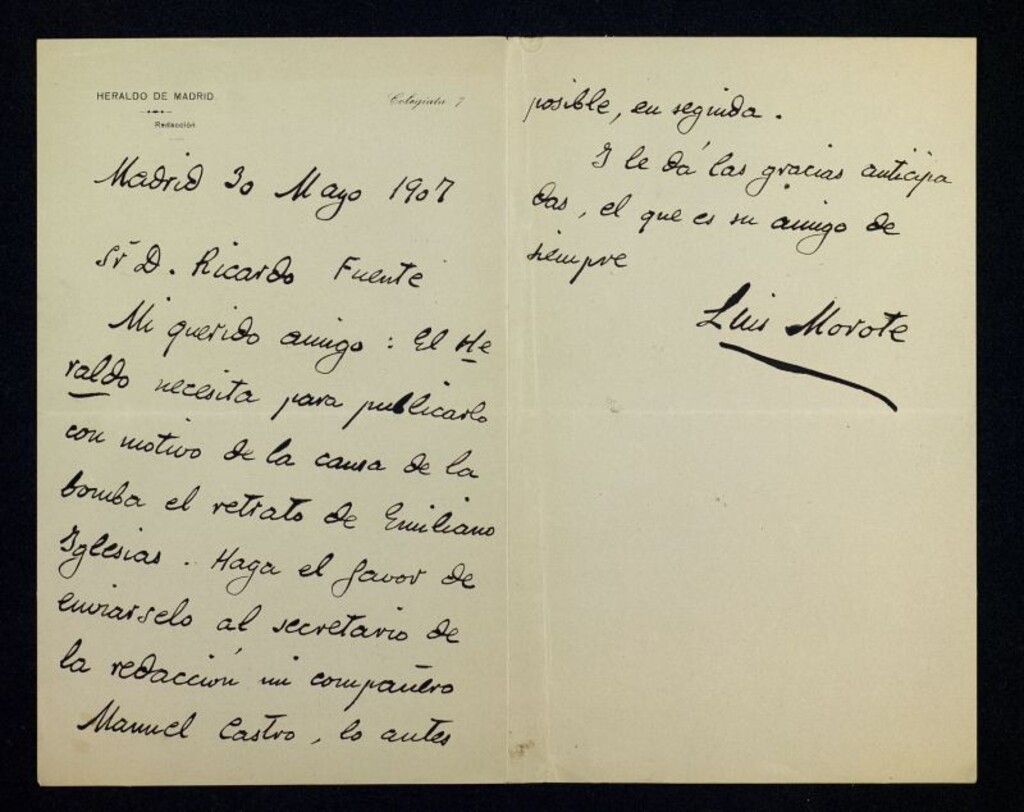 HERALDO DE MADRID
Redacción
Colegiata, 7
Madrid 30 Mayo 1907
Sr D. Ricardo Fuente
Mi querido amigo: El He
raldo necesita para publicarlo
con motivo de la causa de la
bomba el retrato de Emiliano
Iglesias. Haga el favor de
enviarselo al secretario de
la redacción mi compañero
Manuel Castro, lo antes
posible, en seguida.
Y le dá las gracias anticipa
das, el que es su amigo de
siempre
Luis Morote